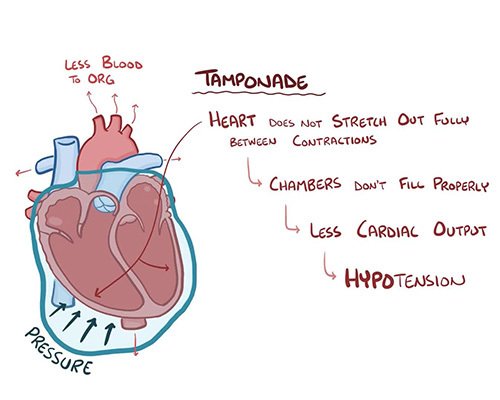 Less Blood
to Org
Tamponade
Heart does not Stretch Out Fully
between Contractions
Chambers don't fill properly
Less Cardiac Output
HYPOtension
Pressure